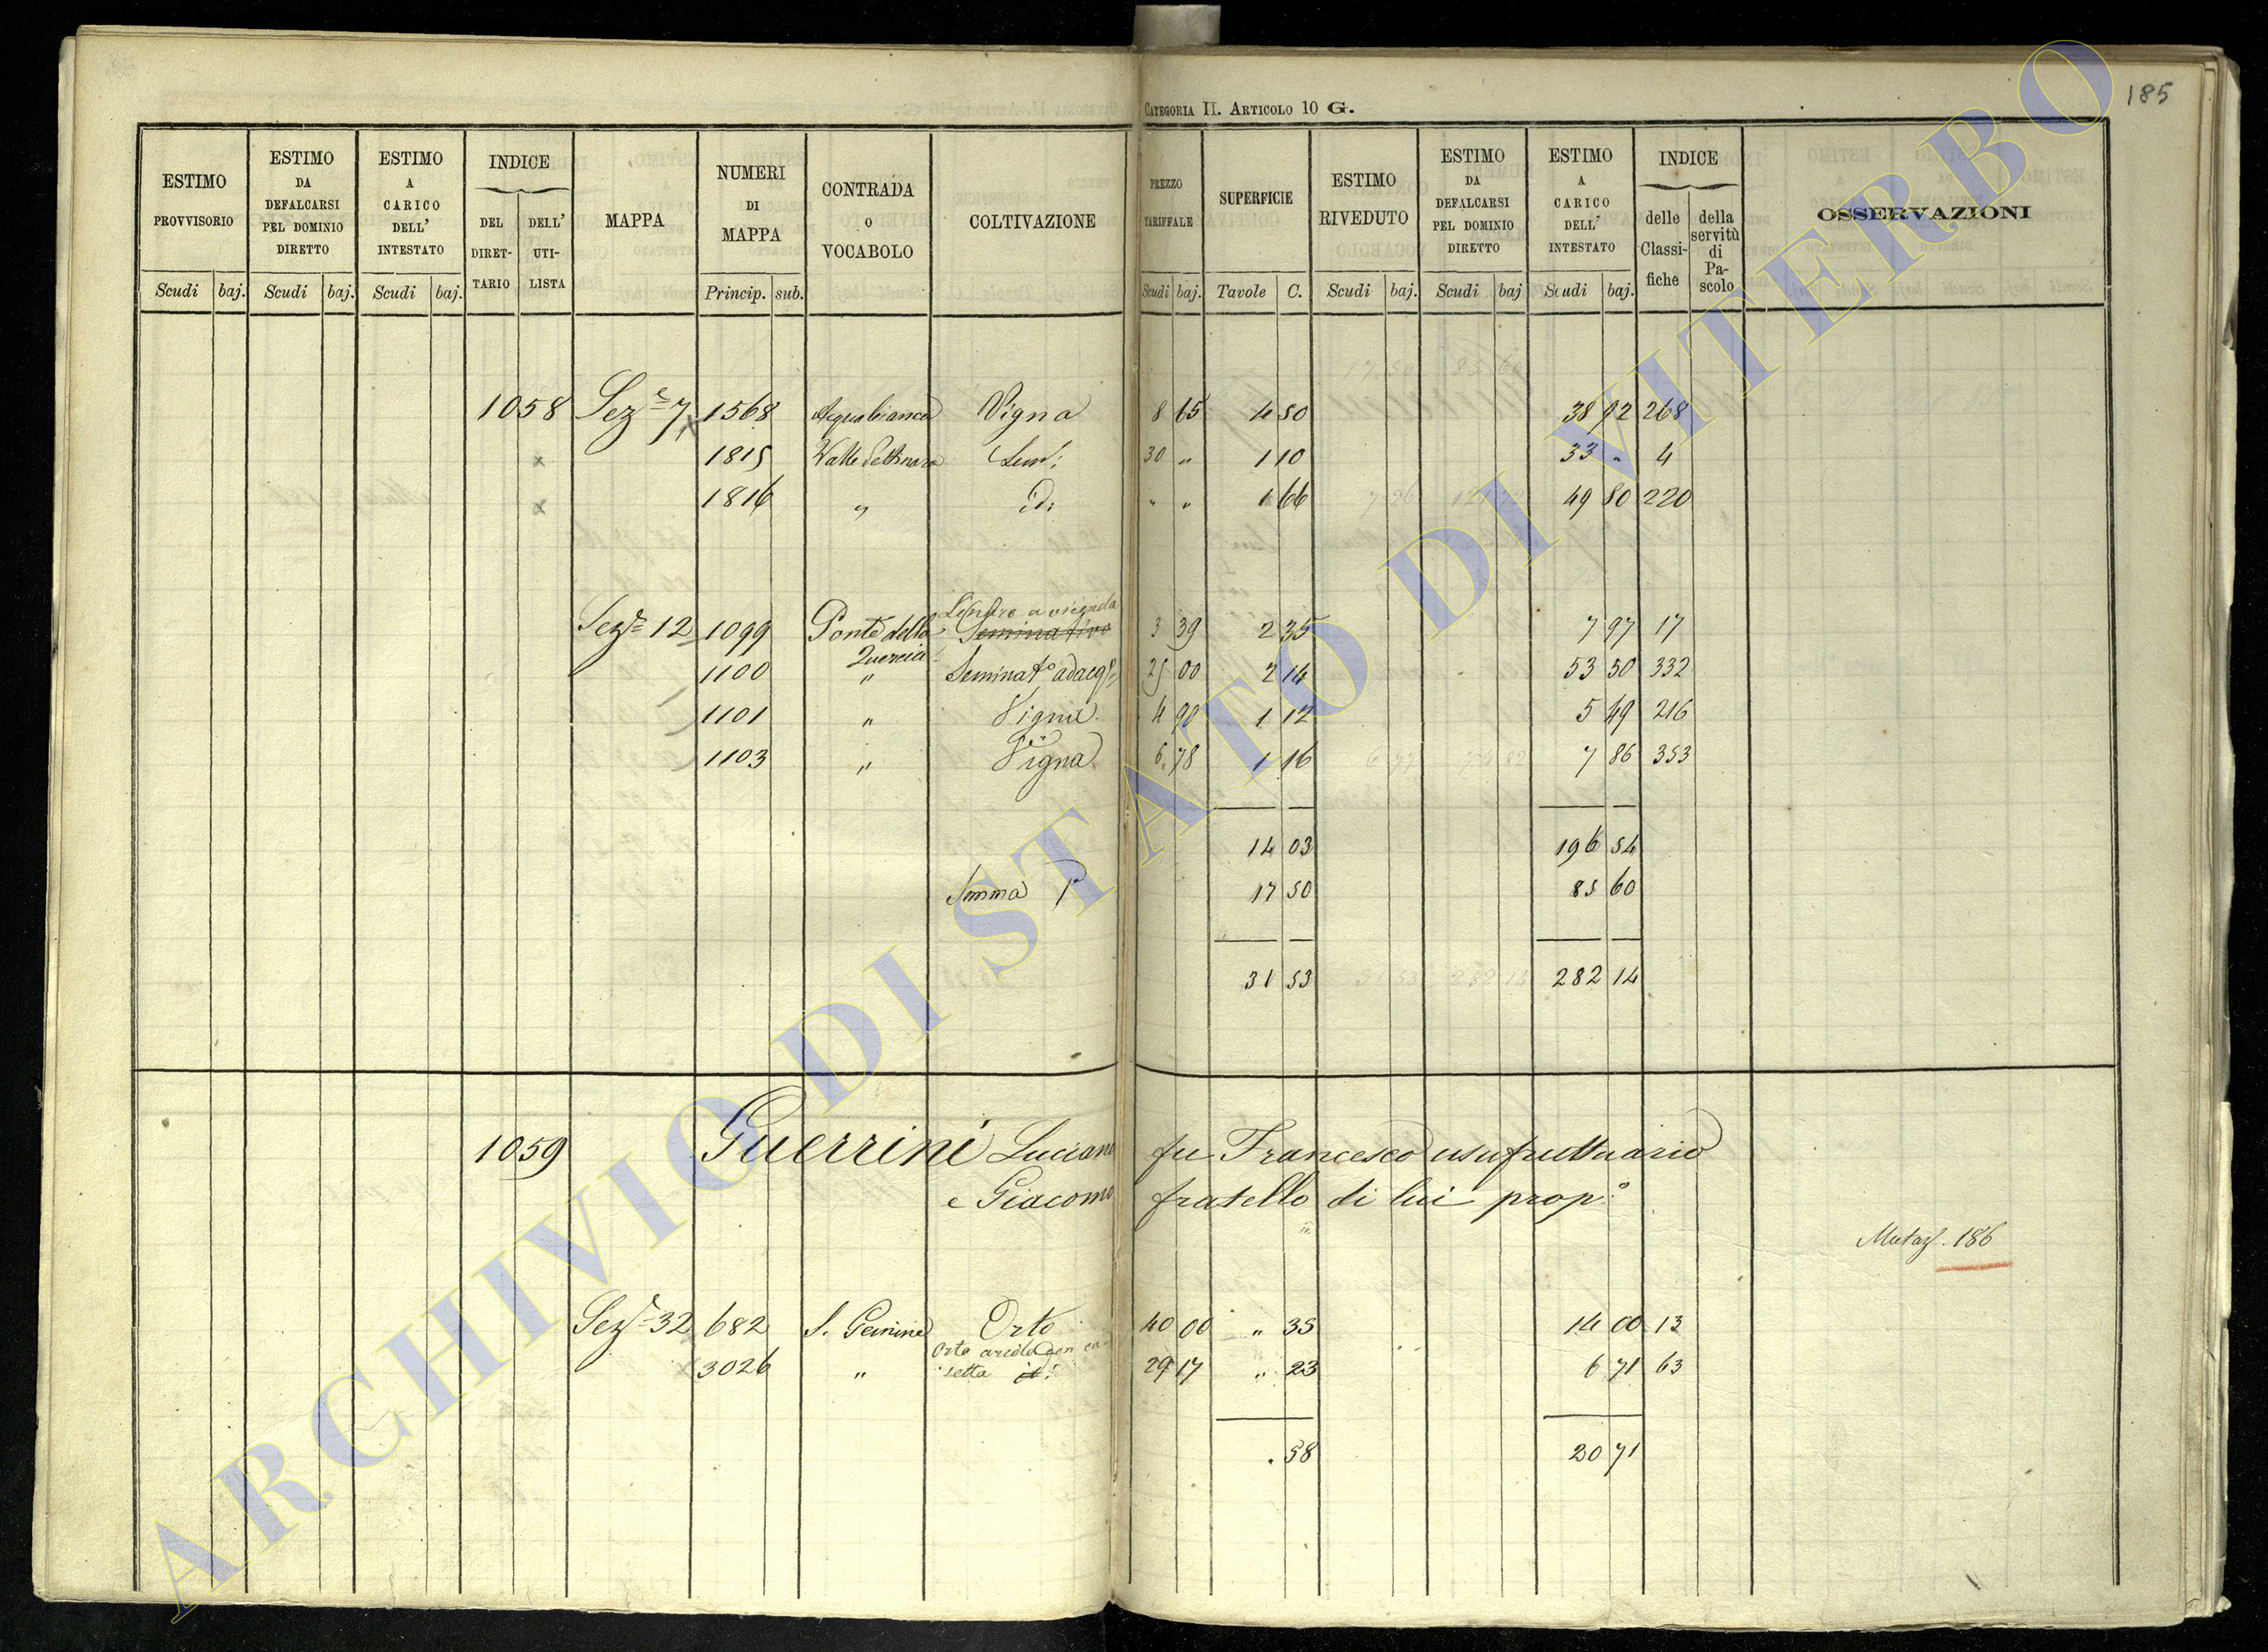 185
CATEGORIA II. ARTICOLO 10 G.
ESTIMO PROVVISORIO Scudi baj.
ESTIMO DA DEFALCARSI PEL DOMINIO DIRETTO Scudi baj.
ESTIMO A CARICO DELL' INTESTATO Scudi baj.
INDICE DEL DIRETTARIO DELL' UTILISTA
MAPPA
NUMERI DI MAPPA Princip. sub.
CONTRADA o VOCABOLO
COLTIVAZIONE
PREZZO TARIFFALE Scudi baj.
SUPERFICIE Tavole C.
ESTIMO RIVEDUTO Scudi baj.
ESTIMO DA DEFALCARSI PEL DOMINIO DIRETTO Scudi baj
ESTIMO A CARICO DELL' INTESTATO Scudi baj.
INDICE delle Classifiche della servitù di Pascolo
OSSERVAZIONI
1058 Sez.e 7 x 1568 Acquabianca Vigna 8 65 4 50 38 92 268
x 1815 Valle Pettinara Sem: 30 " 1 10 33 " 4
x 1816 " Id: " " 1 66 49 80 220
Sez.e 12 1099 Ponte della Quercia Seminativo 3 39 2 35 7 97 17
1100 " Seminat.o adacq.o 25 00 2 14 53 50 332
1101 " Vigna 4 90 1 12 5 49 216
1103 " Vigna 6 78 1 16 7 86 353
14 03 196 54
Somma 1a 17 50 85 60
31 53 282 14
1059 Guerrini Luciano fu Francesco usufruttuario
e Giacomo fratello di lui prop.o
Mutaz. 186
Sez.e 32 682 S. Gemine Orto 40 00 " 35 14 00 13
x 3026 " Orto con casetta 29 17 " 23 6 71 63
. 58 20 71
ARCHIVIO DI STATO DI VITERBO